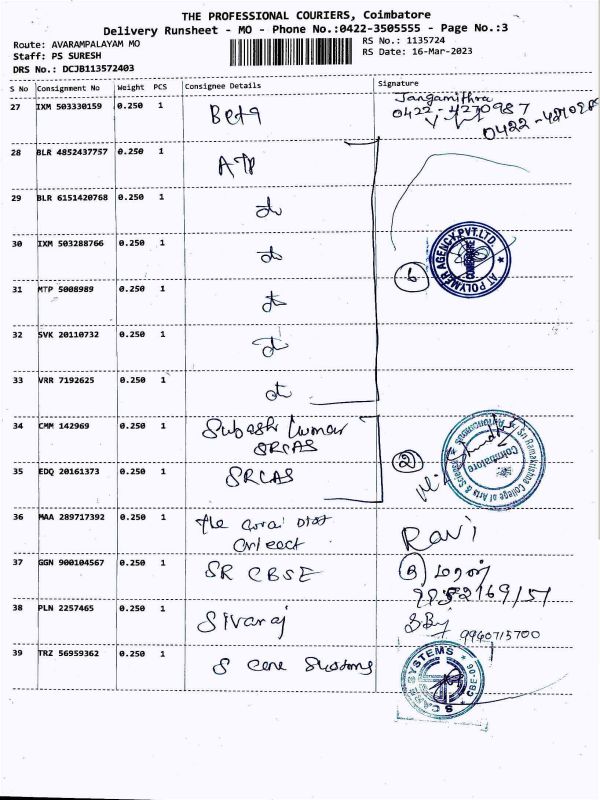 THE PROFESSIONAL COURIERS, Coimbatore
Delivery Runsheet - MO - Phone No.:0422-3505555 - Page No.:3
Route: AVARAMPALAYAM MO
RS No.: 1135724
Staff: PS SURESH
RS Date: 16-Mar-2023
DRS No.: DCJB113572403
S No Consignment No Weight PCS Consignee Details Signature
27 IXM 503330159 0.250 1 Beta Jangamithra
0422-4270987
28 BLR 4852437757 0.250 1 ATP
29 BLR 6151420768 0.250 1 do
30 IXM 503288766 0.250 1 do
6
AT POLYMER AGENCY.PVT.LTD.
COIMBATORE
31 MTP 5008989 0.250 1 do
32 SVK 20110732 0.250 1 do
33 VRR 7192625 0.250 1 do
34 CMM 142969 0.250 1 Subash Kumar
SRCAS
2
Sri Ramakrishna College of Arts & Science
Autonomous
Coimbatore
35 EDQ 20161373 0.250 1 SRCAS
36 MAA 289717392 0.250 1 The
Ravi
37 GGN 900104567 0.250 1 SR CBSE
38 PLN 2257465 0.250 1 Sivaraj
9940715700
39 TRZ 56959362 0.250 1 S Care Systems
S CARE SYSTEMS
CBE-06